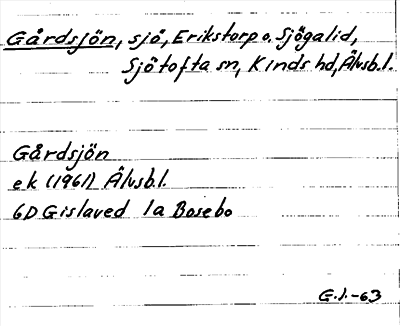 Gårdsjön, sjö, Erikstorp o. Sjögalid,
Sjötofta sn, Kinds hd, Älvsb.l.
Gårdsjön
ek (1961) Älvsb.l.
6D Gislaved 1a Bosebo
G.J.-63